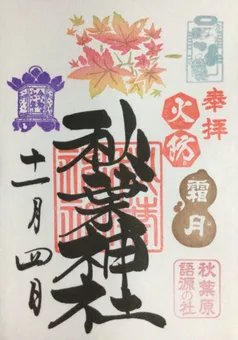 奉拝
火防
霜月
秋葉原
語源の社
秋葉神社
十一月四日